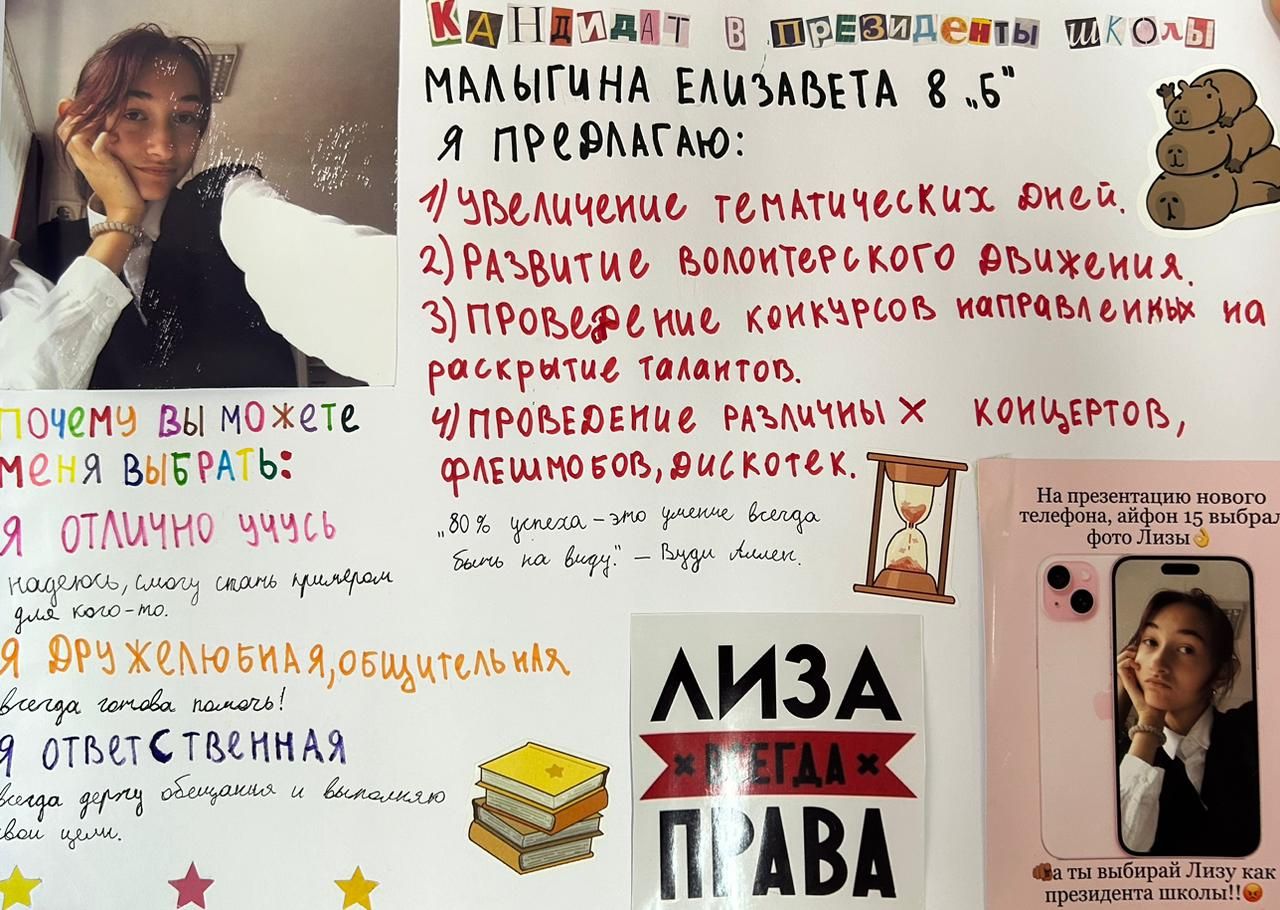 КАНДИДАТ В ПРЕЗИДЕНТЫ ШКОЛЫ
МАЛЫГИНА ЕЛИЗАВЕТА 8 „Б"
Я ПРЕДЛАГАЮ:
1) УВЕЛИЧЕНИЕ ТЕМАТИЧЕСКИХ ДНЕЙ.
2) РАЗВИТИЕ ВОЛОНТЕРСКОГО ДВИЖЕНИЯ.
3) ПРОВЕДЕНИЕ КОНКУРСОВ НАПРАВЛЕННЫХ НА
РАСКРЫТИЕ ТАЛАНТОВ.
4) ПРОВЕДЕНИЕ РАЗЛИЧНЫХ КОНЦЕРТОВ,
ФЛЕШМОБОВ, ДИСКОТЕК.
„80% успеха – это умение всегда
быть на виду." – Вуди Аллен.
ПОЧЕМУ ВЫ МОЖЕТЕ
МЕНЯ ВЫБРАТЬ:
Я ОТЛИЧНО УЧУСЬ
надеюсь, смогу стать примером
для кого-то.
Я ДРУЖЕЛЮБНАЯ, ОБЩИТЕЛЬНАЯ
всегда готова помочь!
Я ОТВЕТСТВЕННАЯ
всегда держу обещания и выполняю
свои цели.
ЛИЗА
ВСЕГДА
ПРАВА
На презентацию нового
телефона, айфон 15 выбрал
фото Лизы👌
а ты выбирай Лизу как
президента школы!!😡